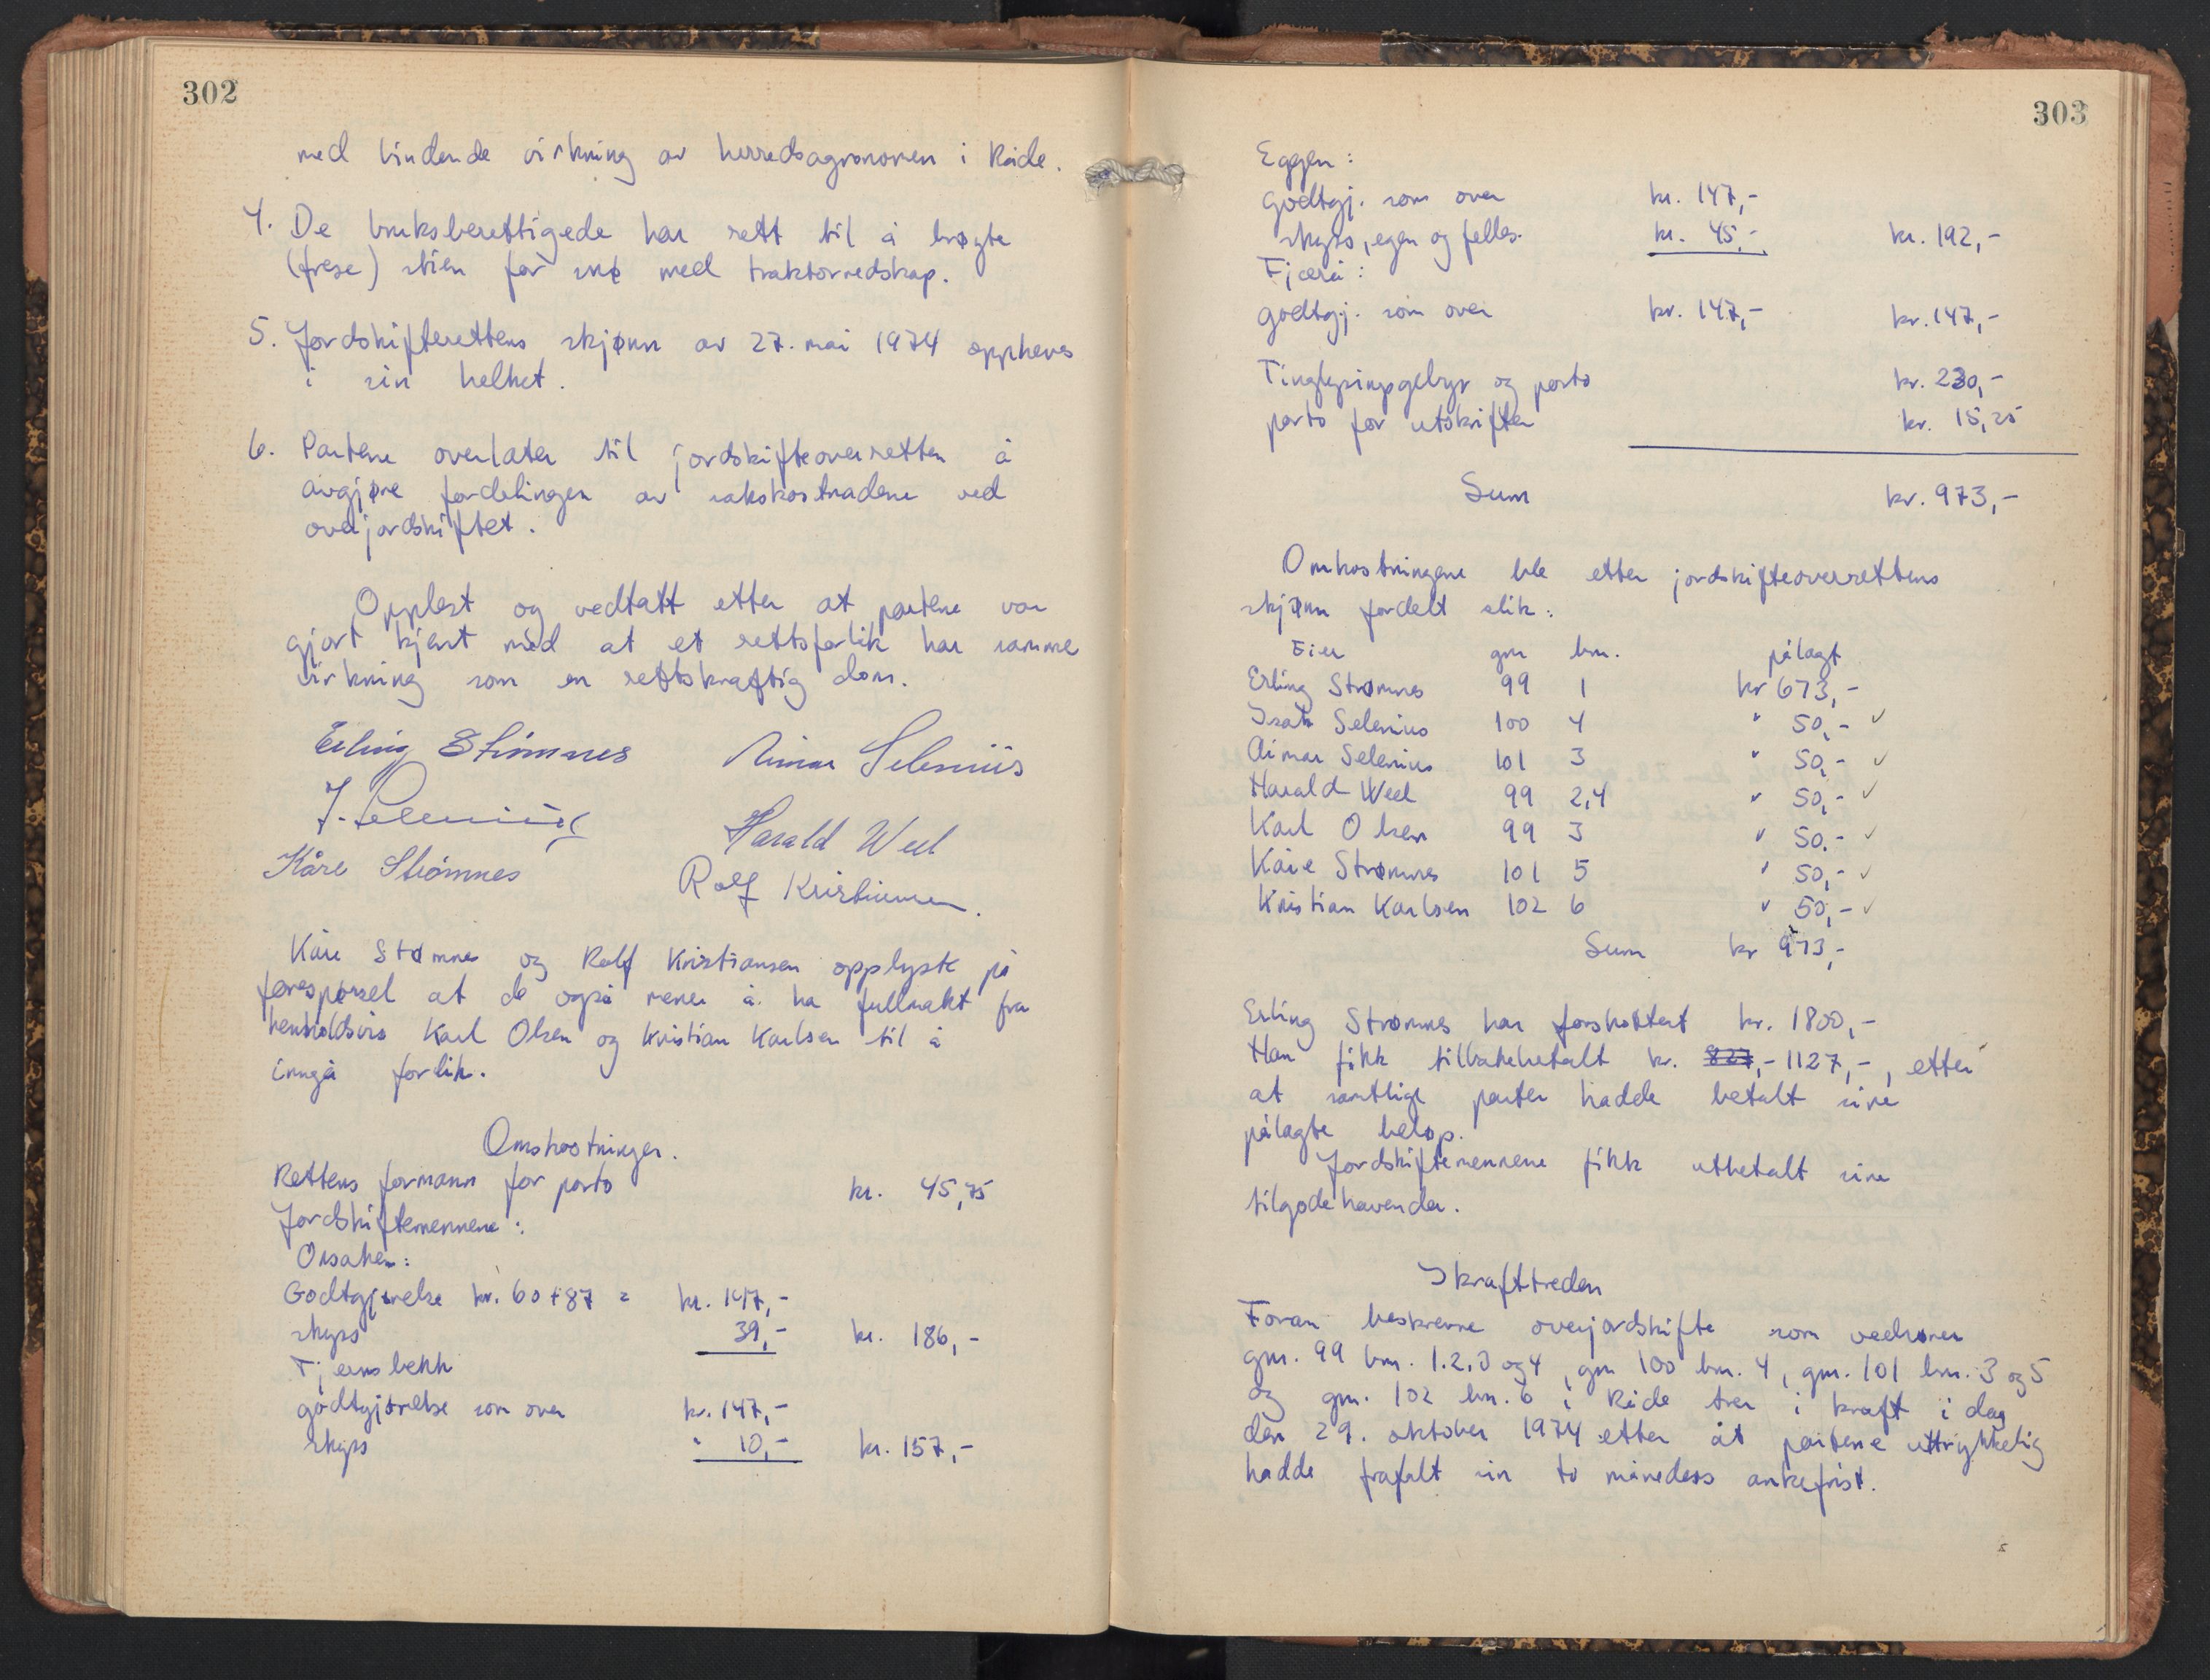 302
med bindende virkning av herredsagronomen i Råde.
4. De bruksberettigede har rett til å brøyte
(frese) stien for snø med traktorredskap.
5. Jordskifterettens skjønn av 27. mai 1974 oppheves
i sin helhet.
6. Partene overlater til jordskifteoverretten å
avgjøre fordelingen av sakskostnadene ved
overjordskiftet.
Opplest og vedtatt etter at partene var
gjort kjent med at et rettsforlik har samme
virkning som en rettskraftig dom.
Erling Strömnes Aimar Selenius
J. Selenius Harald Weel
Kåre Strömnes Rolf Kristiansen.
Kåre Stømnes og Rolf Kristiansen opplyste på
forespørsel at de også mener å ha fullmakt fra
henholdsvis Karl Olsen og Kristian Karlsen til å
inngå forlik.
Omkostninger.
Rettens formann for porto kr. 45,75
Jordskiftemennene:
Orsaken:
Godtgjørelse kr. 60+87 = kr. 147,-
skyss 39,- kr. 186,-
Tjernsbekk
godtgjørelse som over kr. 147,-
skyss " 10,- kr. 157,-
303
Eggen:
godtgj. som over kr. 147,-
skyss, egen og felles. kr. 45,- kr. 192,-
Fjærå:
godtgj. som over kr. 147,- kr. 147,-
Tinglysingsgebyr og porto kr. 230,-
porto for utskrifter kr. 15,25
Sum kr. 973,-
Omkostningene ble etter jordskifteoverrettens
skjønn fordelt slik:
Eier gnr bnr. pålagt
Erling Strømnes 99 1 kr 673,-
Isak Selenius 100 4 " 50,- ✓
Aimar Selenius 101 3 " 50,- ✓
Harald Weel 99 2,4 " 50,- ✓
Karl Olsen 99 3 " 50,- ✓
Kåre Strømnes 101 5 " 50,- ✓
Kristian Karlsen 102 6 " 50,- ✓
Sum kr 973,-
Erling Strømnes har forskottert kr. 1800,-
Han fikk tilbakebetalt kr. 827,- 1127,-, etter
at samtlige parter hadde betalt sine
pålagte beløp.
Jordskiftemennene fikk utbetalt sine
tilgodehavender.
Ikrafttreden
Foran beskrevne overjordskifte som vedrører
gnr. 99 bnr. 1.2.3 og 4, gnr 100 bnr. 4, gnr. 101 bnr. 3 og 5
og gnr. 102 bnr. 6 i Råde trer i kraft i dag
den 29. oktober 1974 etter at partene uttrykkelig
hadde frafalt sin to måneders ankefrist.